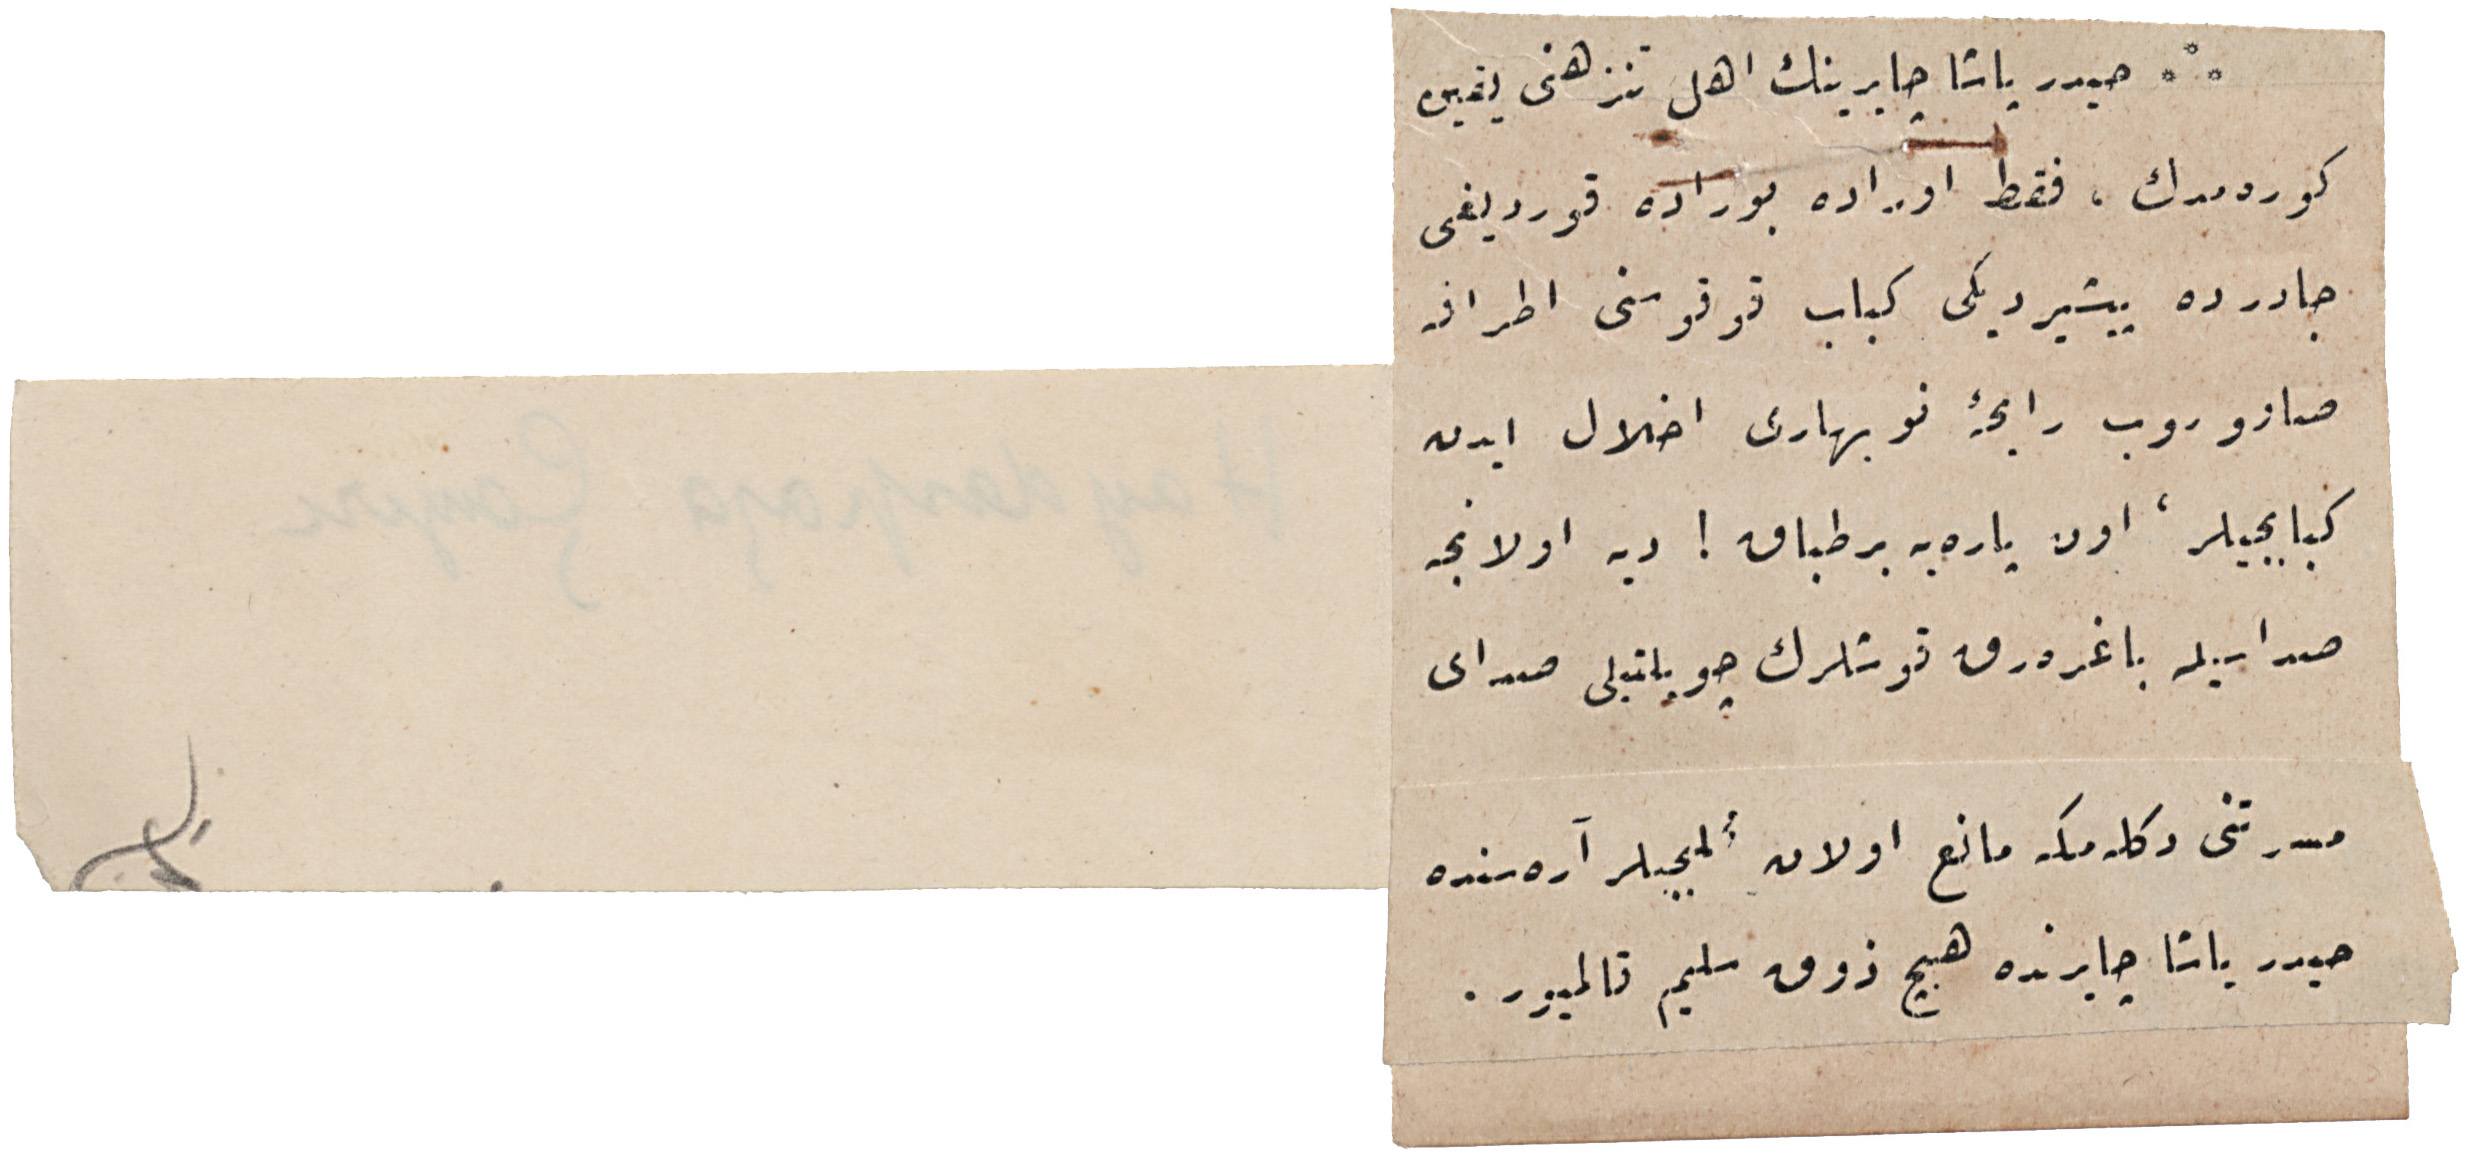 حیدر پاشا چایرینك اهل تنزهنی یقین
كوره‌مدك ، فقط اوراده بوراده قوردیغی
چادرده پیشیردیكی كباب قوقوسنی اطرافه
صاووروب رایحۀ نوبهاری اخلال ایدن
كبابجیلر ، اون پاره‌یه بر طباق ! دیه اولانجه
صداسیله باغره‌رق قوشلرك چویلتیلی صدای
مسرتنی دكله‌مكه مانع اولان آره‌سنده
حیدر پاشا چایرنده هیچ ذوق سلیم قالمیور .
Haydarpaşa Çayırı